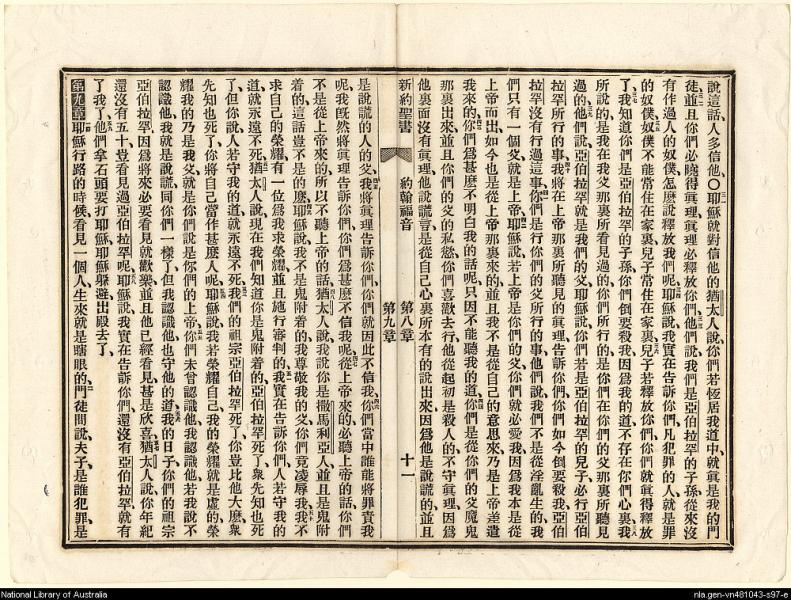 說這話人多信他○耶穌就對信他的猶太人說、你們若恆居我道中、就眞是我的門
徒、並且你們必曉得眞理、眞理必釋放你們、他們說、我們是亞伯拉罕的子孫、從來沒
有作過人的奴僕、怎麼說釋放我們呢、耶穌說、我實在告訴你們、凡犯罪的人、就是罪
的奴僕、奴僕不能常住在家裏、兒子常住在家裏、兒子若釋放你們、你們就眞得釋放
了、我知道你們是亞伯拉罕的子孫、你們倒要殺我、因爲我的道不存在你們心裏、我
所說的、是我在我父那裏所看見過的、你們所行的、是你們在你們的父那裏所聽見
過的、他們說、亞伯拉罕就是我們的父、耶穌說、你們若是亞伯拉罕的兒子、必行亞伯
拉罕所行的事、我將在上帝那裏所聽見的眞理、告訴你們、你們如今倒要殺我、亞伯
拉罕沒有行過這事、你們是行你們的父所行的事、他們說、我們不是從淫亂生的、我
們只有一個父就是上帝、耶穌說、若上帝是你們的父、你們就必愛我、因爲我本是從
上帝而出、如今也是從上帝那裏來的、並且我不是從自己的意思來、乃是上帝差遣
我來的、你們爲甚麼不明白我的話呢、只因不能聽我的道、你們是從你們的父魔鬼
那裏出來、並且你們的父的私慾、你們喜歡去行、他從起初是殺人的、不守眞理、因爲
他裏面沒有眞理、他說謊言、是從自己心裏所本有的說出來、因爲他是說謊的、並且
新約聖書 約翰福音 第八章 第九章 十一
是說謊的人的父、我將眞理告訴你們、你們就因此不信我、你們當中誰能將罪責我
呢、我旣然將眞理告訴你們、你們爲甚麼不信我呢、從上帝來的、必聽上帝的話、你們
不是從上帝來的、所以不聽上帝的話、猶太人說、我說你是撒馬利亞人、並且是鬼附
着的、這話豈不是的麼、耶穌說、我不是鬼附着的、我尊敬我的父、你們竟凌辱我、我不
求自己的榮耀、有一位爲我求榮耀、並且施行審判的、我實在告訴你們、人若守我的
道、就永遠不死、猶太人說、現在我們知道你是鬼附着的、亞伯拉罕死了、衆先知也死
了、但你說、人若守我的道、就永遠不死、我們的祖宗亞伯拉罕死了、你豈比他大麼、衆
先知也死了、你將自己當作甚麼人呢、耶穌說、我若榮耀自己、我的榮耀就是虛的、榮
耀我的乃是我父、就是你們說是你們的上帝、你們未曾認識他、我認識他、若我說不
認識他、我就是說謊、同你們一樣了、但我認識他、也守他的道、我的日子、你們的祖宗
亞伯拉罕因爲將來必要看見、就歡樂、並且他已經看見、甚是欣喜、猶太人說、你年紀
還沒有五十、豈看見過亞伯拉罕呢、耶穌說、我實在告訴你們、還沒有亞伯拉罕、就有
了我了、他們拿石頭要打耶穌、耶穌躱避出殿去了、
第九章耶穌行路的時候、看見一個人、生來就是瞎眼的、門徒問說、夫子、是誰犯罪、是
National Library of Australia
nla.gen-vn481043-s97-e